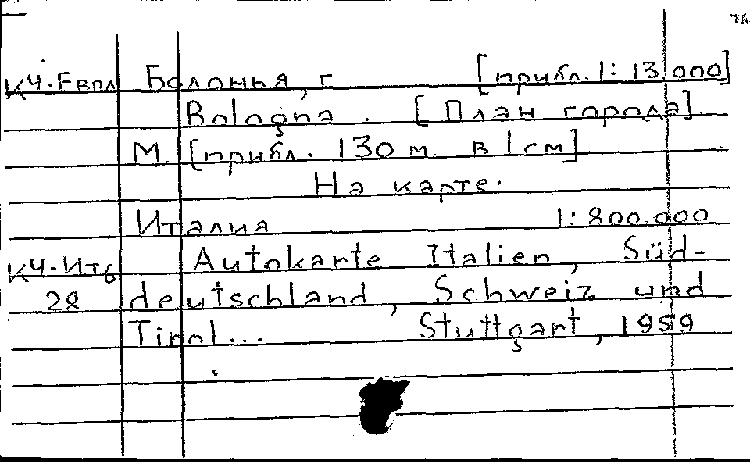 КЧ-Евпл Болонья, г. [прибл. 1:13.000]
Bologna. [План города]
М [прибл. 130 м в 1 см]
На карте:
Италия 1:800.000
КЧ-Ит6 Autokarte Italien, Süd-
28 deutschland, Schweiz und
Tirol... Stuttgart, 1959